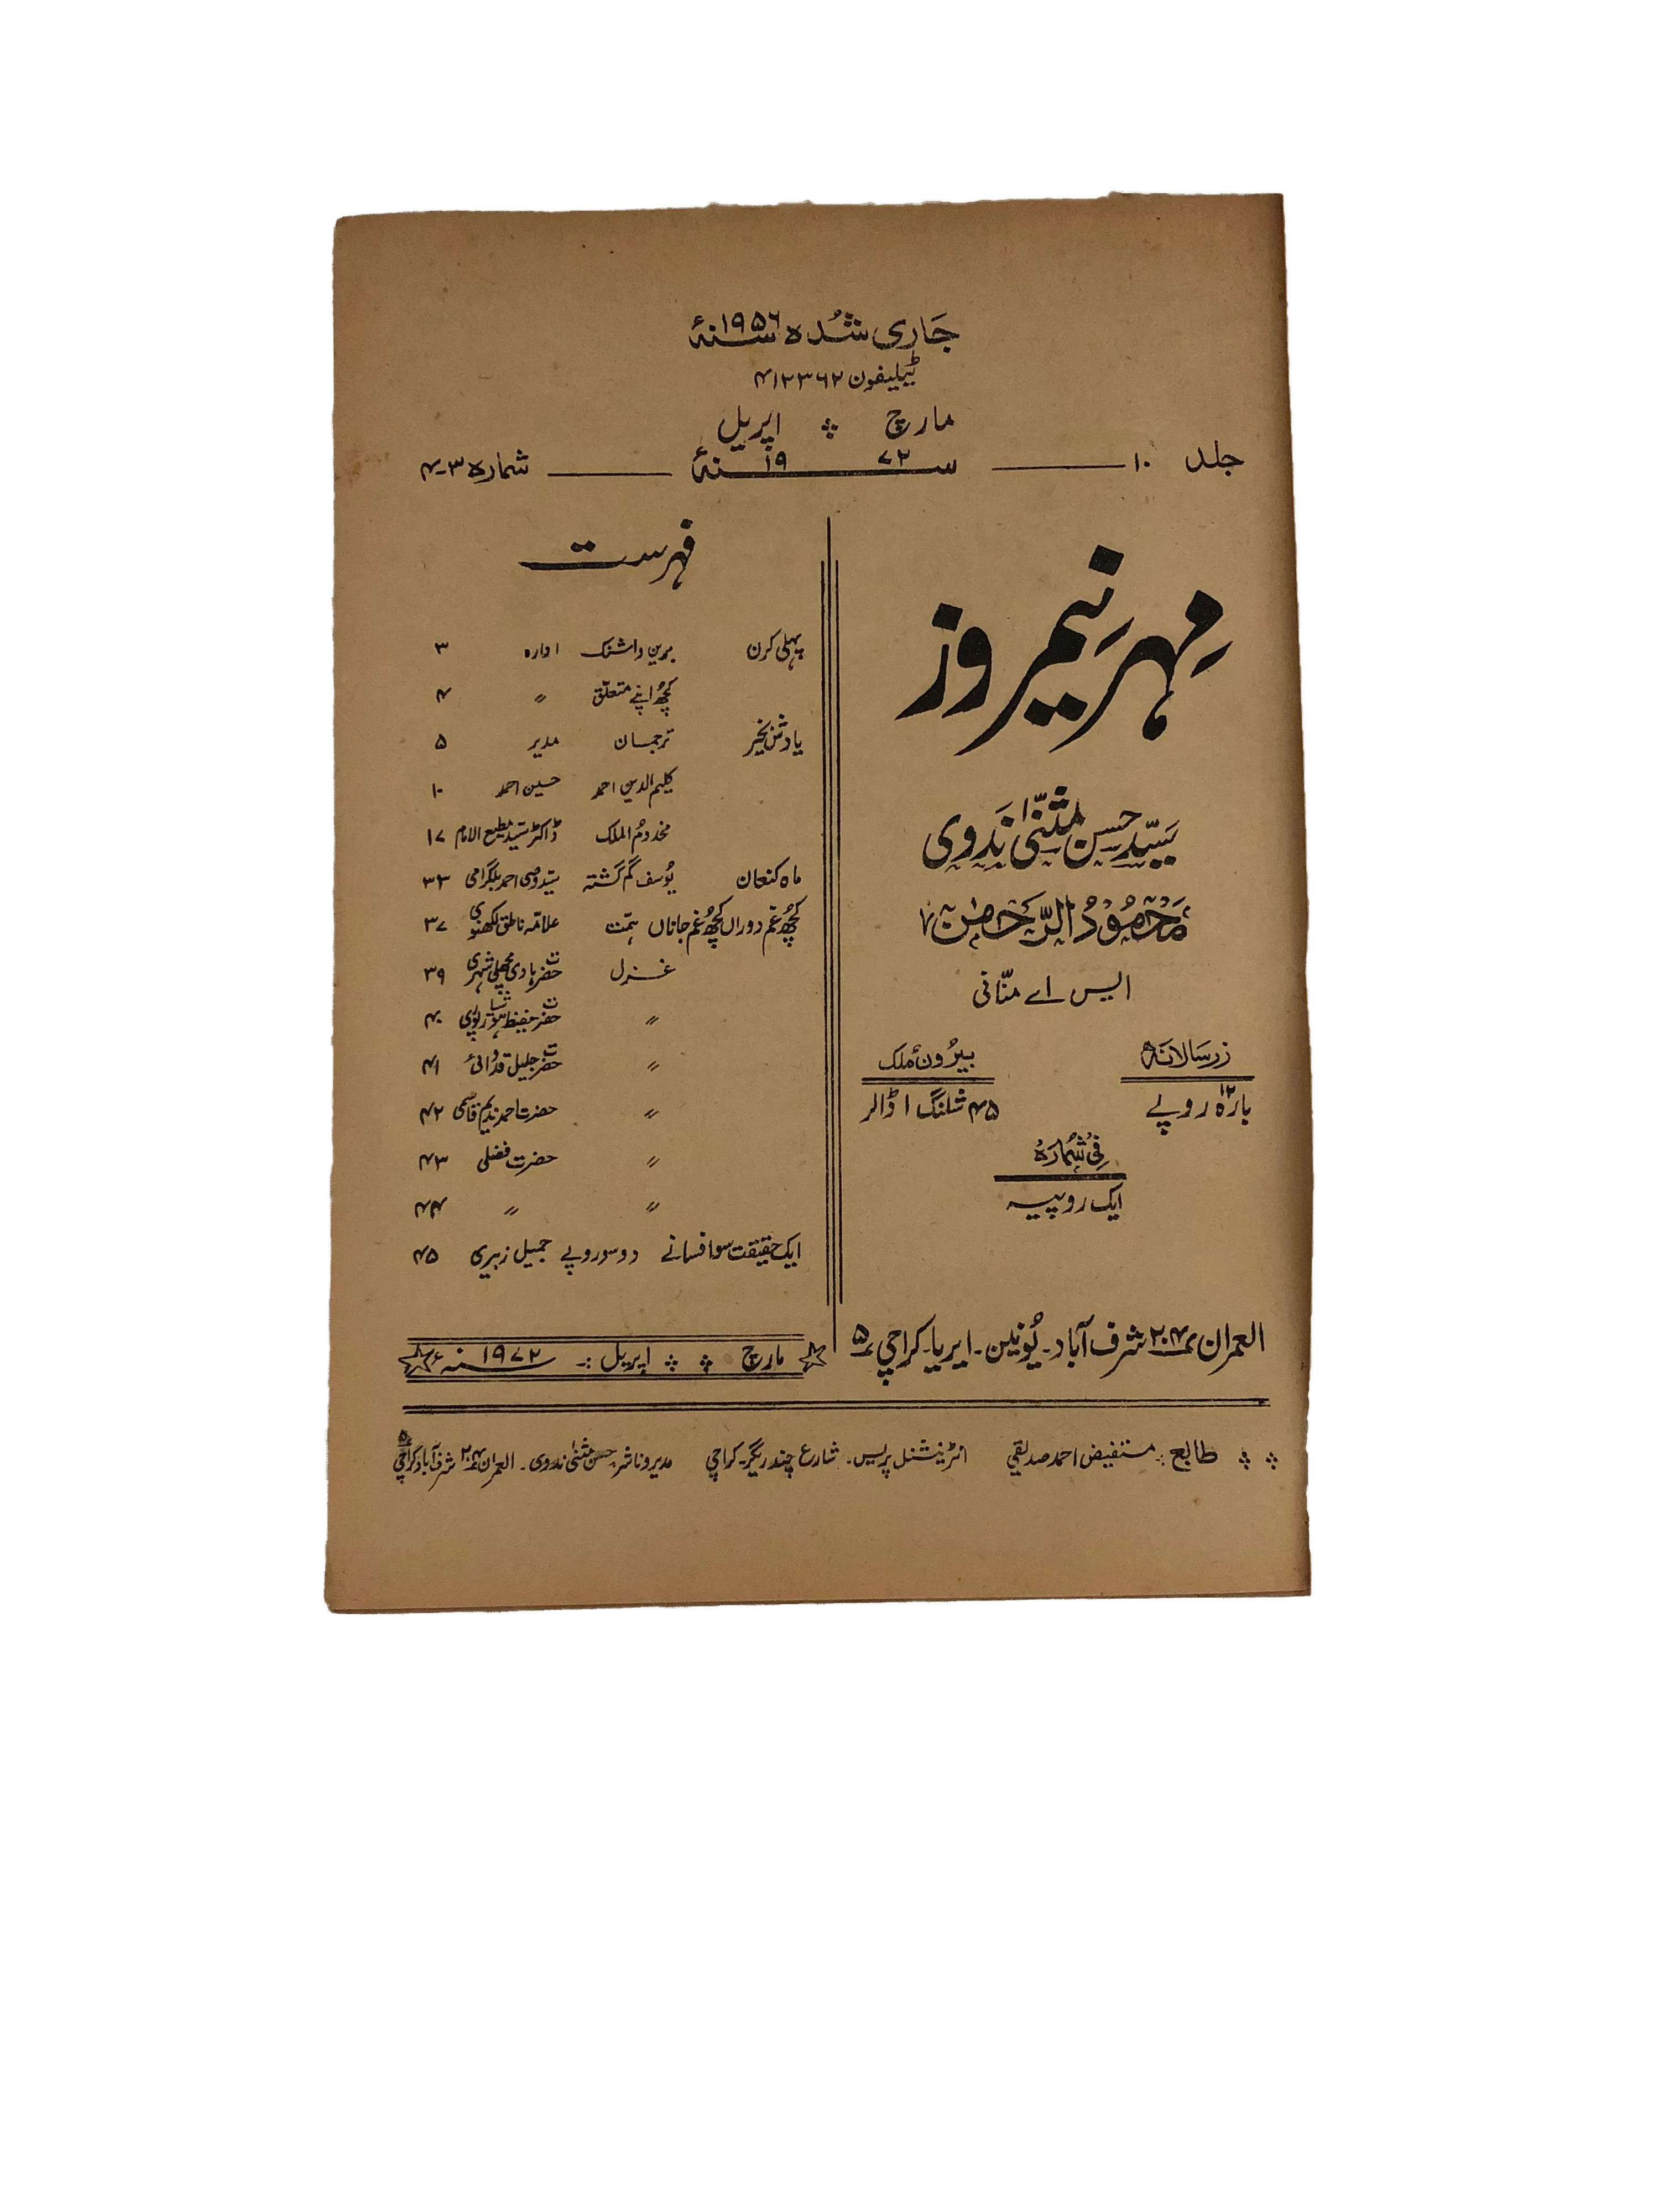 جاری شدہ سنہ ۱۹۵۶ء
ٹیلیفون ۴۱۲۳۶۲
مارچ اپریل
جلد ۱۰ سنہ ۱۹۷۲ء شمارہ ۳-۴
مہرِ نیمروز
سیّد حسن مثنّیٰ ندوی
محمود الرّحمٰن
ایس اے منّانی
زر سالانہ
۱۲
بارہ روپے
بیرُون ملک
۴۵ شلنگ ۱ ڈالر
فی شمارہ
ایک روپیہ
العمران ۲۰۴ شرف آباد۔ یُونین۔ ایریا۔ کراچی ۵
فہرست
پہلی کرن ادارہ ۳
کچھ اپنے متعلّق 〃 ۴
یادش بخیر ترجمان مدیر ۵
کلیم الدین احمد حسین احمد ۱۰
مخدومُ الملک ڈاکٹر سیّد مطیع الامام ۱۷
ماہ کنعان یُوسف گم گشتہ سیّد وصی احمد بلگرامی ۳۳
کچھ غم دوراں کچھ غم جاناں ہمّت علامّہ ناطق لکھنوی ۳۷
غزل حضرت ہادی مچھلی شہری ۳۹
〃 حضرت حفیظ ہوشیارپوری ۴۰
〃 حضرت جلیل قدوائی ۴۱
〃 حضرت احمد ندیم قاسمی ۴۲
〃 حضرت فضلی ۴۳
〃 〃 ۴۴
ایک حقیقت سو افسانے دو سو روپے جمیل زبیری ۴۵
مارچ اپریل :۔ سنہ ۱۹۷۲ء
طابع :۔ مستفیض احمد صدیقی انٹرنیشنل پریس۔ شارع چندریگر۔ کراچی مدیر و ناشر حسن مثنیٰ ندوی۔ العمران ۲۰۴ شرف آباد کراچی ۵